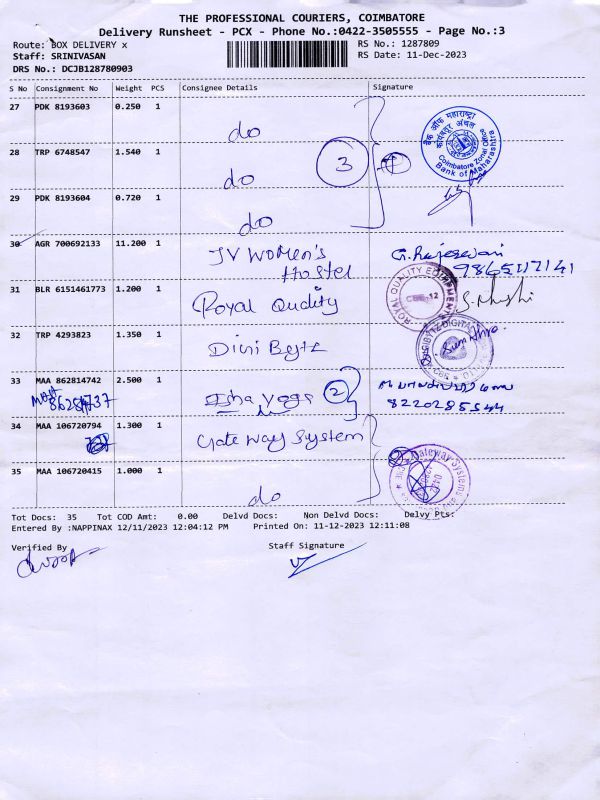 THE PROFESSIONAL COURIERS, COIMBATORE
Delivery Runsheet - PCX - Phone No.:0422-3505555 - Page No.:3
Route: BOX DELIVERY x
RS No.: 1287809
Staff: SRINIVASAN
RS Date: 11-Dec-2023
DRS No.: DCJB128780903
S No Consignment No Weight PCS Consignee Details Signature
27 PDK 8193603 0.250 1 do
28 TRP 6748547 1.540 1 do
3
बैंक ऑफ महाराष्ट्र
Coimbatore Zonal Office
Bank of Maharashtra
29 PDK 8193604 0.720 1 do
30 AGR 700692133 11.200 1 JV Women's
Hostel
G. Rajeswari
9865117141
31 BLR 6151461773 1.200 1 Royal Quality
ROYAL QUALITY EQUIPMENTS
32 TRP 4293823 1.350 1 Divi Byte
33 MAA 862814742 2.500 1 Isha Yoga 2
8220285544
34 MAA 106720794 1.300 1 Gate Way System
Gateway Systems
35 MAA 106720415 1.000 1 do
Tot Docs: 35 Tot COD Amt: 0.00 Delvd Docs: Non Delvd Docs: Delvy Pts:
Entered By :NAPPINAX 12/11/2023 12:04:12 PM Printed On: 11-12-2023 12:11:08
Verified By Staff Signature